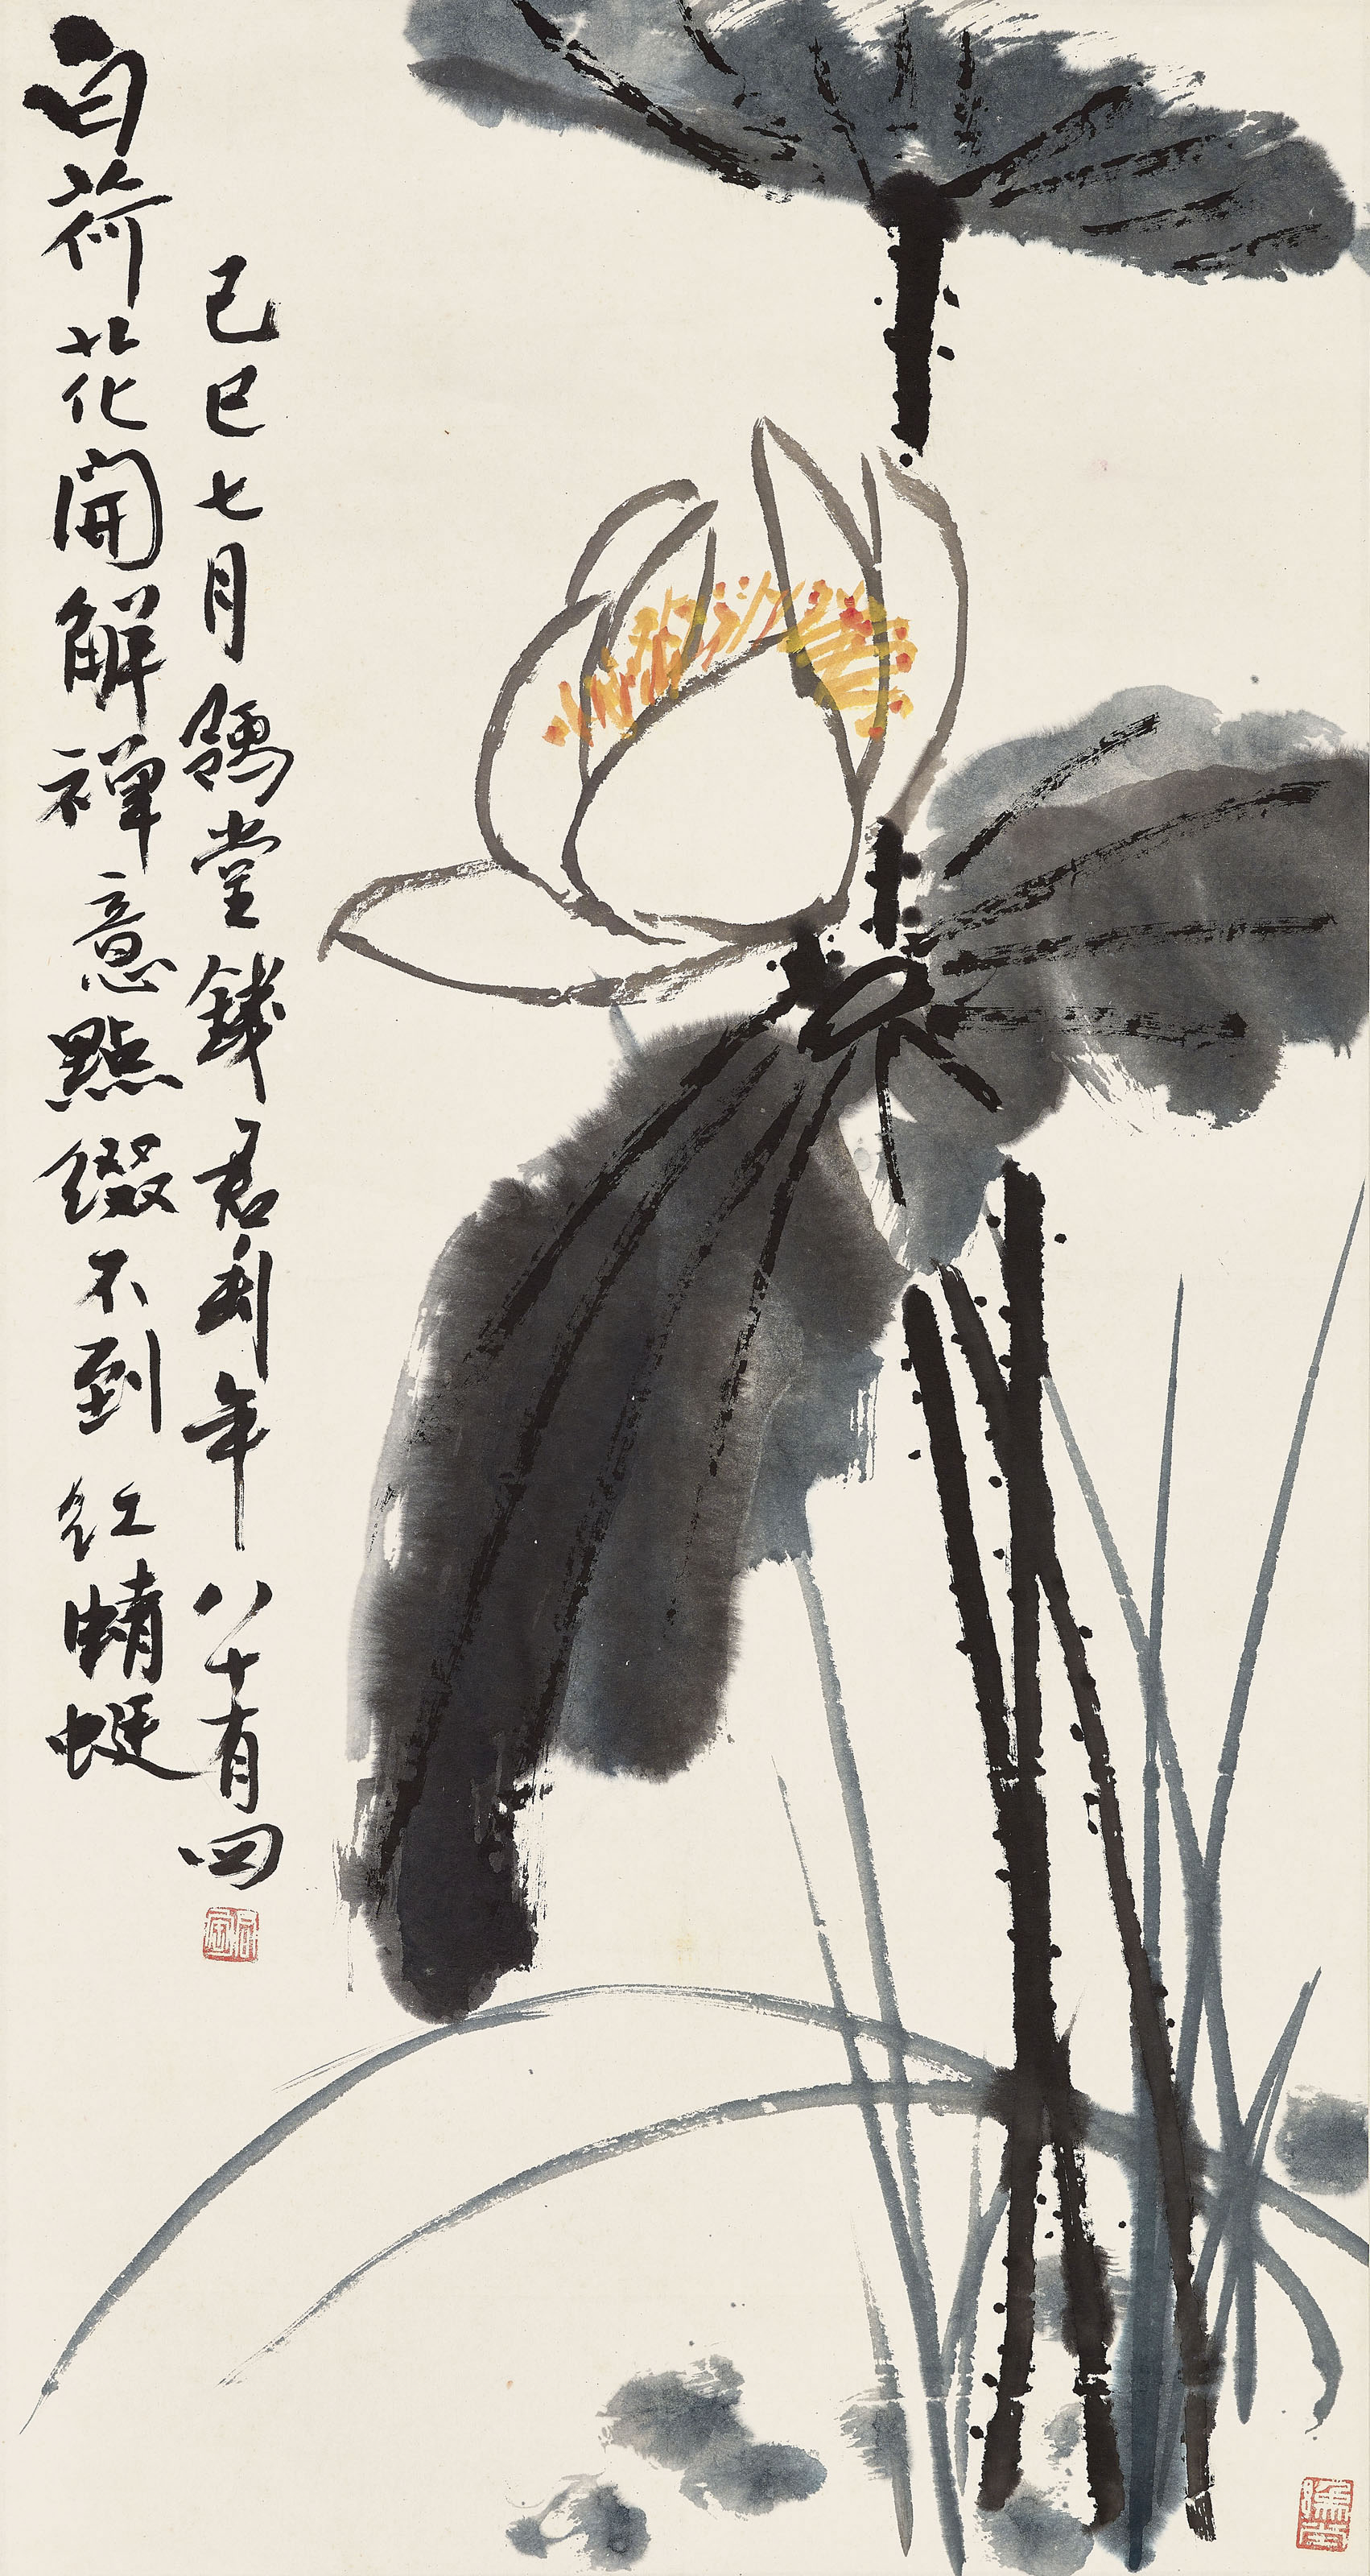 白荷花開解禪意點綴不到紅蜻蜓
己巳七月豫堂錢君匋年八十有四
君匋